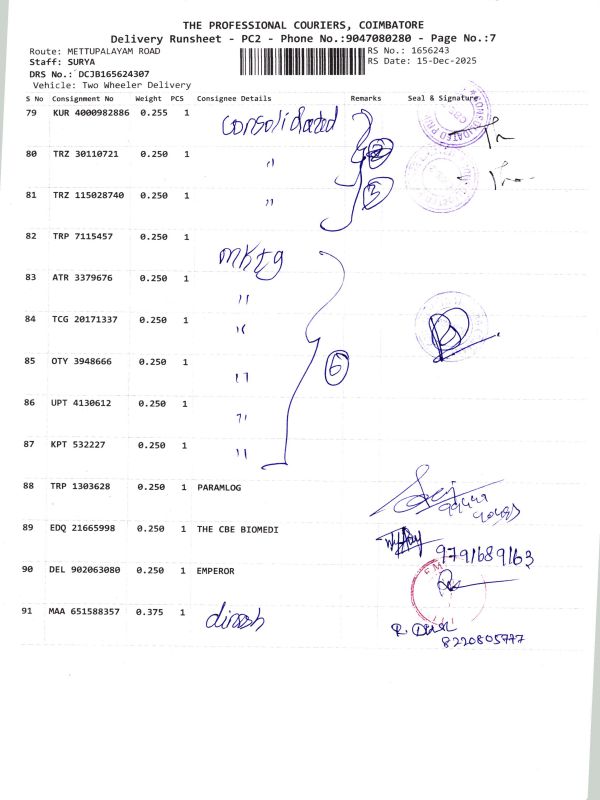 THE PROFESSIONAL COURIERS, COIMBATORE
Delivery Runsheet - PC2 - Phone No.:9047080280 - Page No.:7
Route: METTUPALAYAM ROAD RS No.: 1656243
Staff: SURYA RS Date: 15-Dec-2025
DRS No.: DCJB165624307
Vehicle: Two Wheeler Delivery
S No Consignment No Weight PCS Consignee Details Remarks Seal & Signature
79 KUR 4000982886 0.255 1 consolidated
80 TRZ 30110721 0.250 1 "
81 TRZ 115028740 0.250 1 " 3
82 TRP 7115457 0.250 1 mktg
83 ATR 3379676 0.250 1 "
84 TCG 20171337 0.250 1 "
85 OTY 3948666 0.250 1 " 6
86 UPT 4130612 0.250 1 "
87 KPT 532227 0.250 1 "
88 TRP 1303628 0.250 1 PARAMLOG
89 EDQ 21665998 0.250 1 THE CBE BIOMEDI
9791689163
90 DEL 902063080 0.250 1 EMPEROR
91 MAA 651588357 0.375 1 dinesh
8220805777